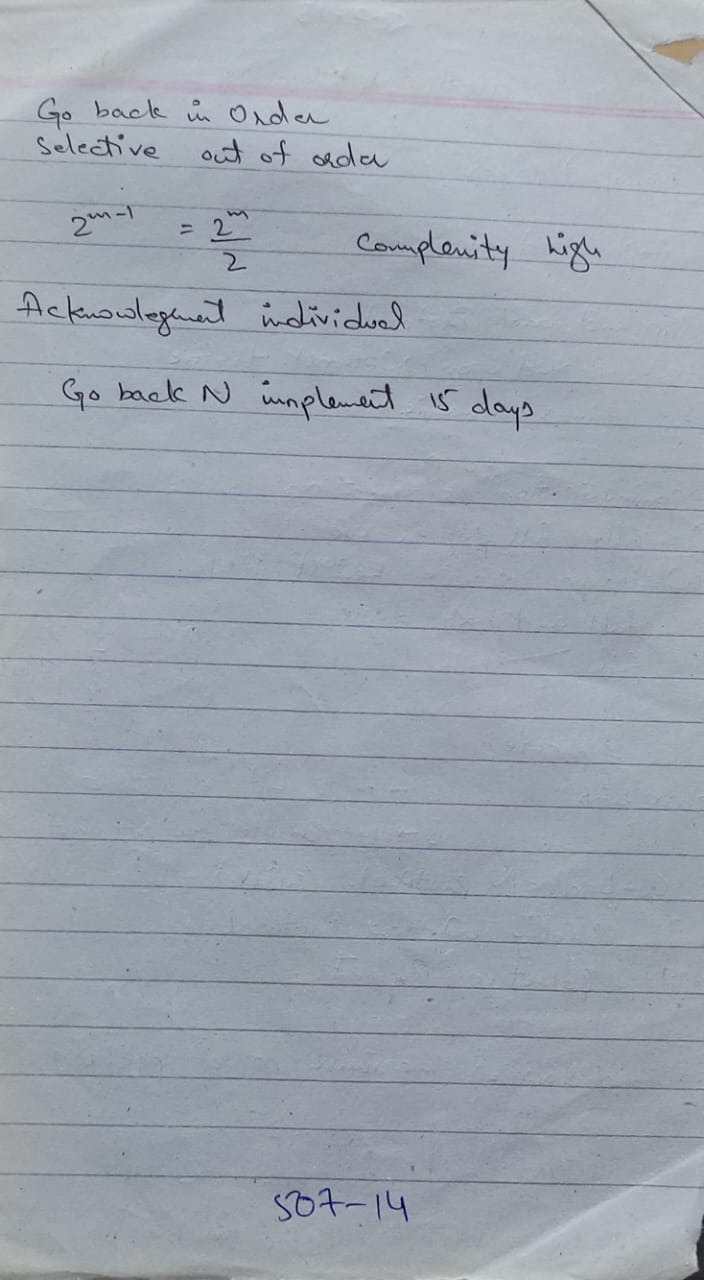 Go back in Order
Selective out of order
2^{m-1} = 2^m / 2 Complexity high
Acknowlegment individual
Go back N implement 15 days
S07-14